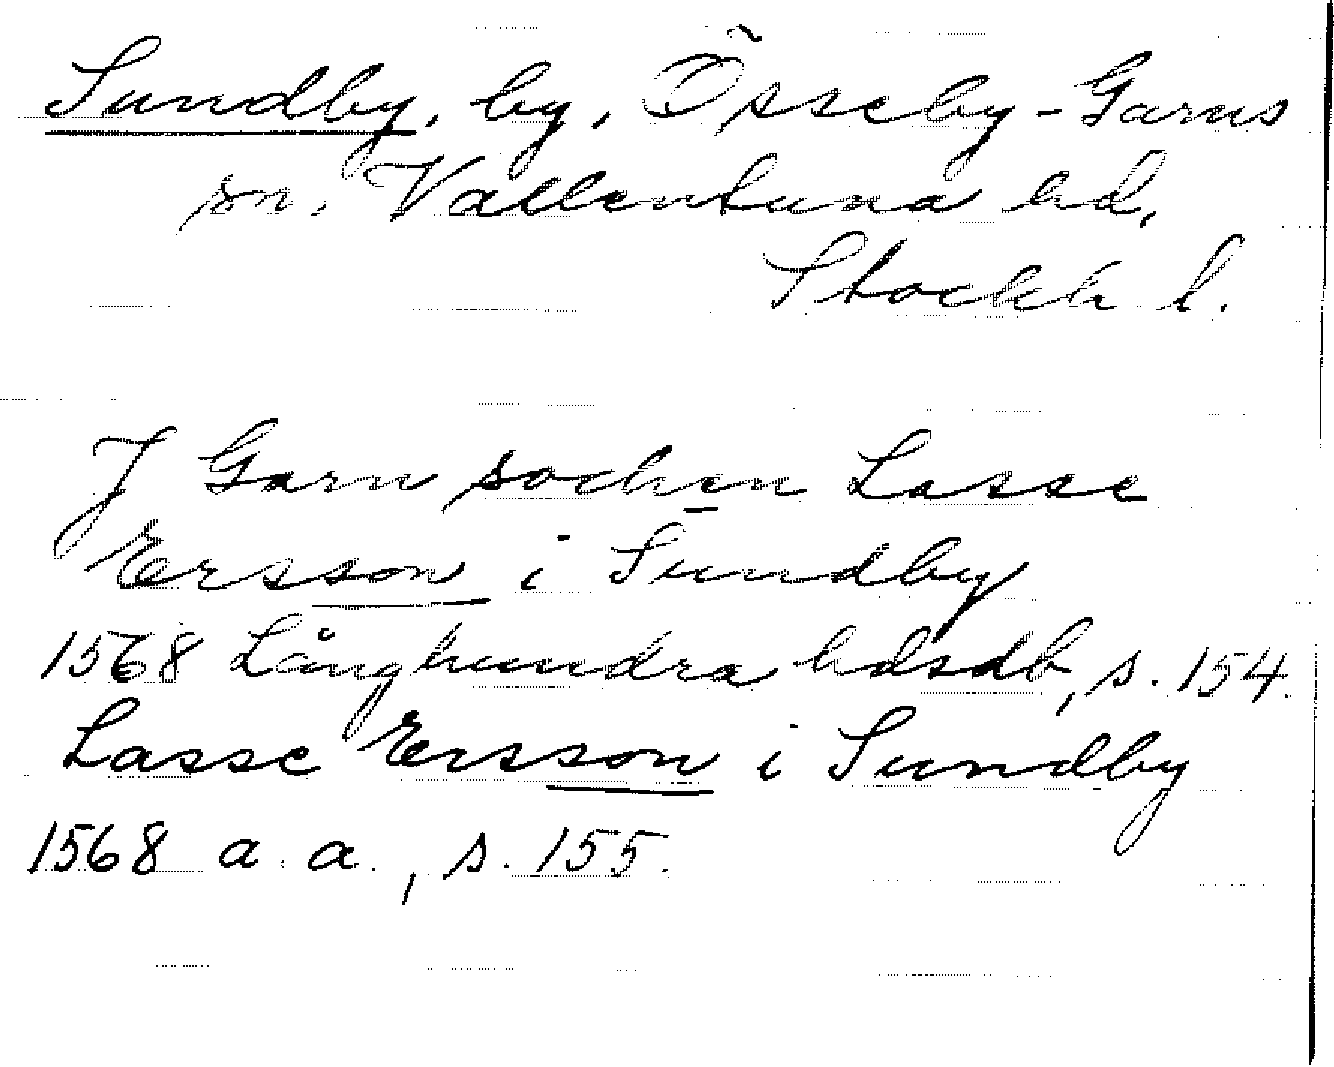 Sundby, by, Össeby-Garns
sn. Vallentuna hd,
Stockh l.
J Garn sochen Lasse
Ersson i Sundby
1568 Långhundra hdsdb, s. 154.
Lasse Ersson i Sundby
1568 a. a., s. 155.